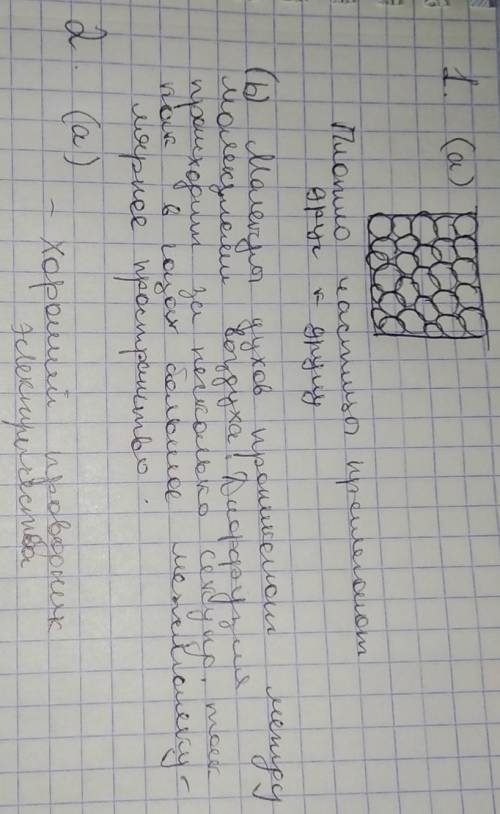 1. (a)
Плотно частицы прилегают
друг к другу
(b) Молекулы духов проникают между
молекулами воздуха. Диффузия
происходит за несколько секунд, так
как в газах большое межмолеку-
лярное пространство.
2. (a) – хороший проводник
электричества